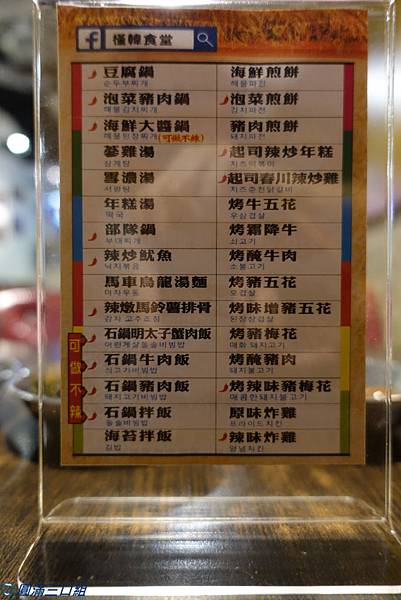 f 槿韓食堂
豆腐鍋
순두부찌개
泡菜豬肉鍋
해물김치찌개
海鮮大醬鍋
해물된장찌개(可做不辣)
蔘雞湯
삼계탕
雪濃湯
서렁탕
年糕湯
떡국
部隊鍋
부대찌개
辣炒魷魚
낙지볶음
馬車烏龍湯麵
마차우동
辣燉馬鈴薯排骨
감자 고추조림
石鍋明太子蟹肉飯
石鍋牛肉飯
쇠고기비빔밥
石鍋豬肉飯
돼지고기비빔밥
石鍋拌飯
돌솥비빔밥
海苔拌飯
김밥
可做不辣
海鮮煎餅
해물파전
泡菜煎餅
김치파전
豬肉煎餅
돼지파전
起司辣炒年糕
치즈떡볶이
起司春川辣炒雞
치즈춘천닭갈비
烤牛五花
우삼겹살
烤霜降牛
쇠고기
烤醃牛肉
소불고기
烤豬五花
오겹살
烤味增豬五花
된장삼겹살
烤豬梅花
매화 돼지고기
烤醃豬肉
돼지불고기
烤辣味豬梅花
매콤한돼지불고기
原味炸雞
프라이드치킨
辣味炸雞
양념치킨
圓滿三口組